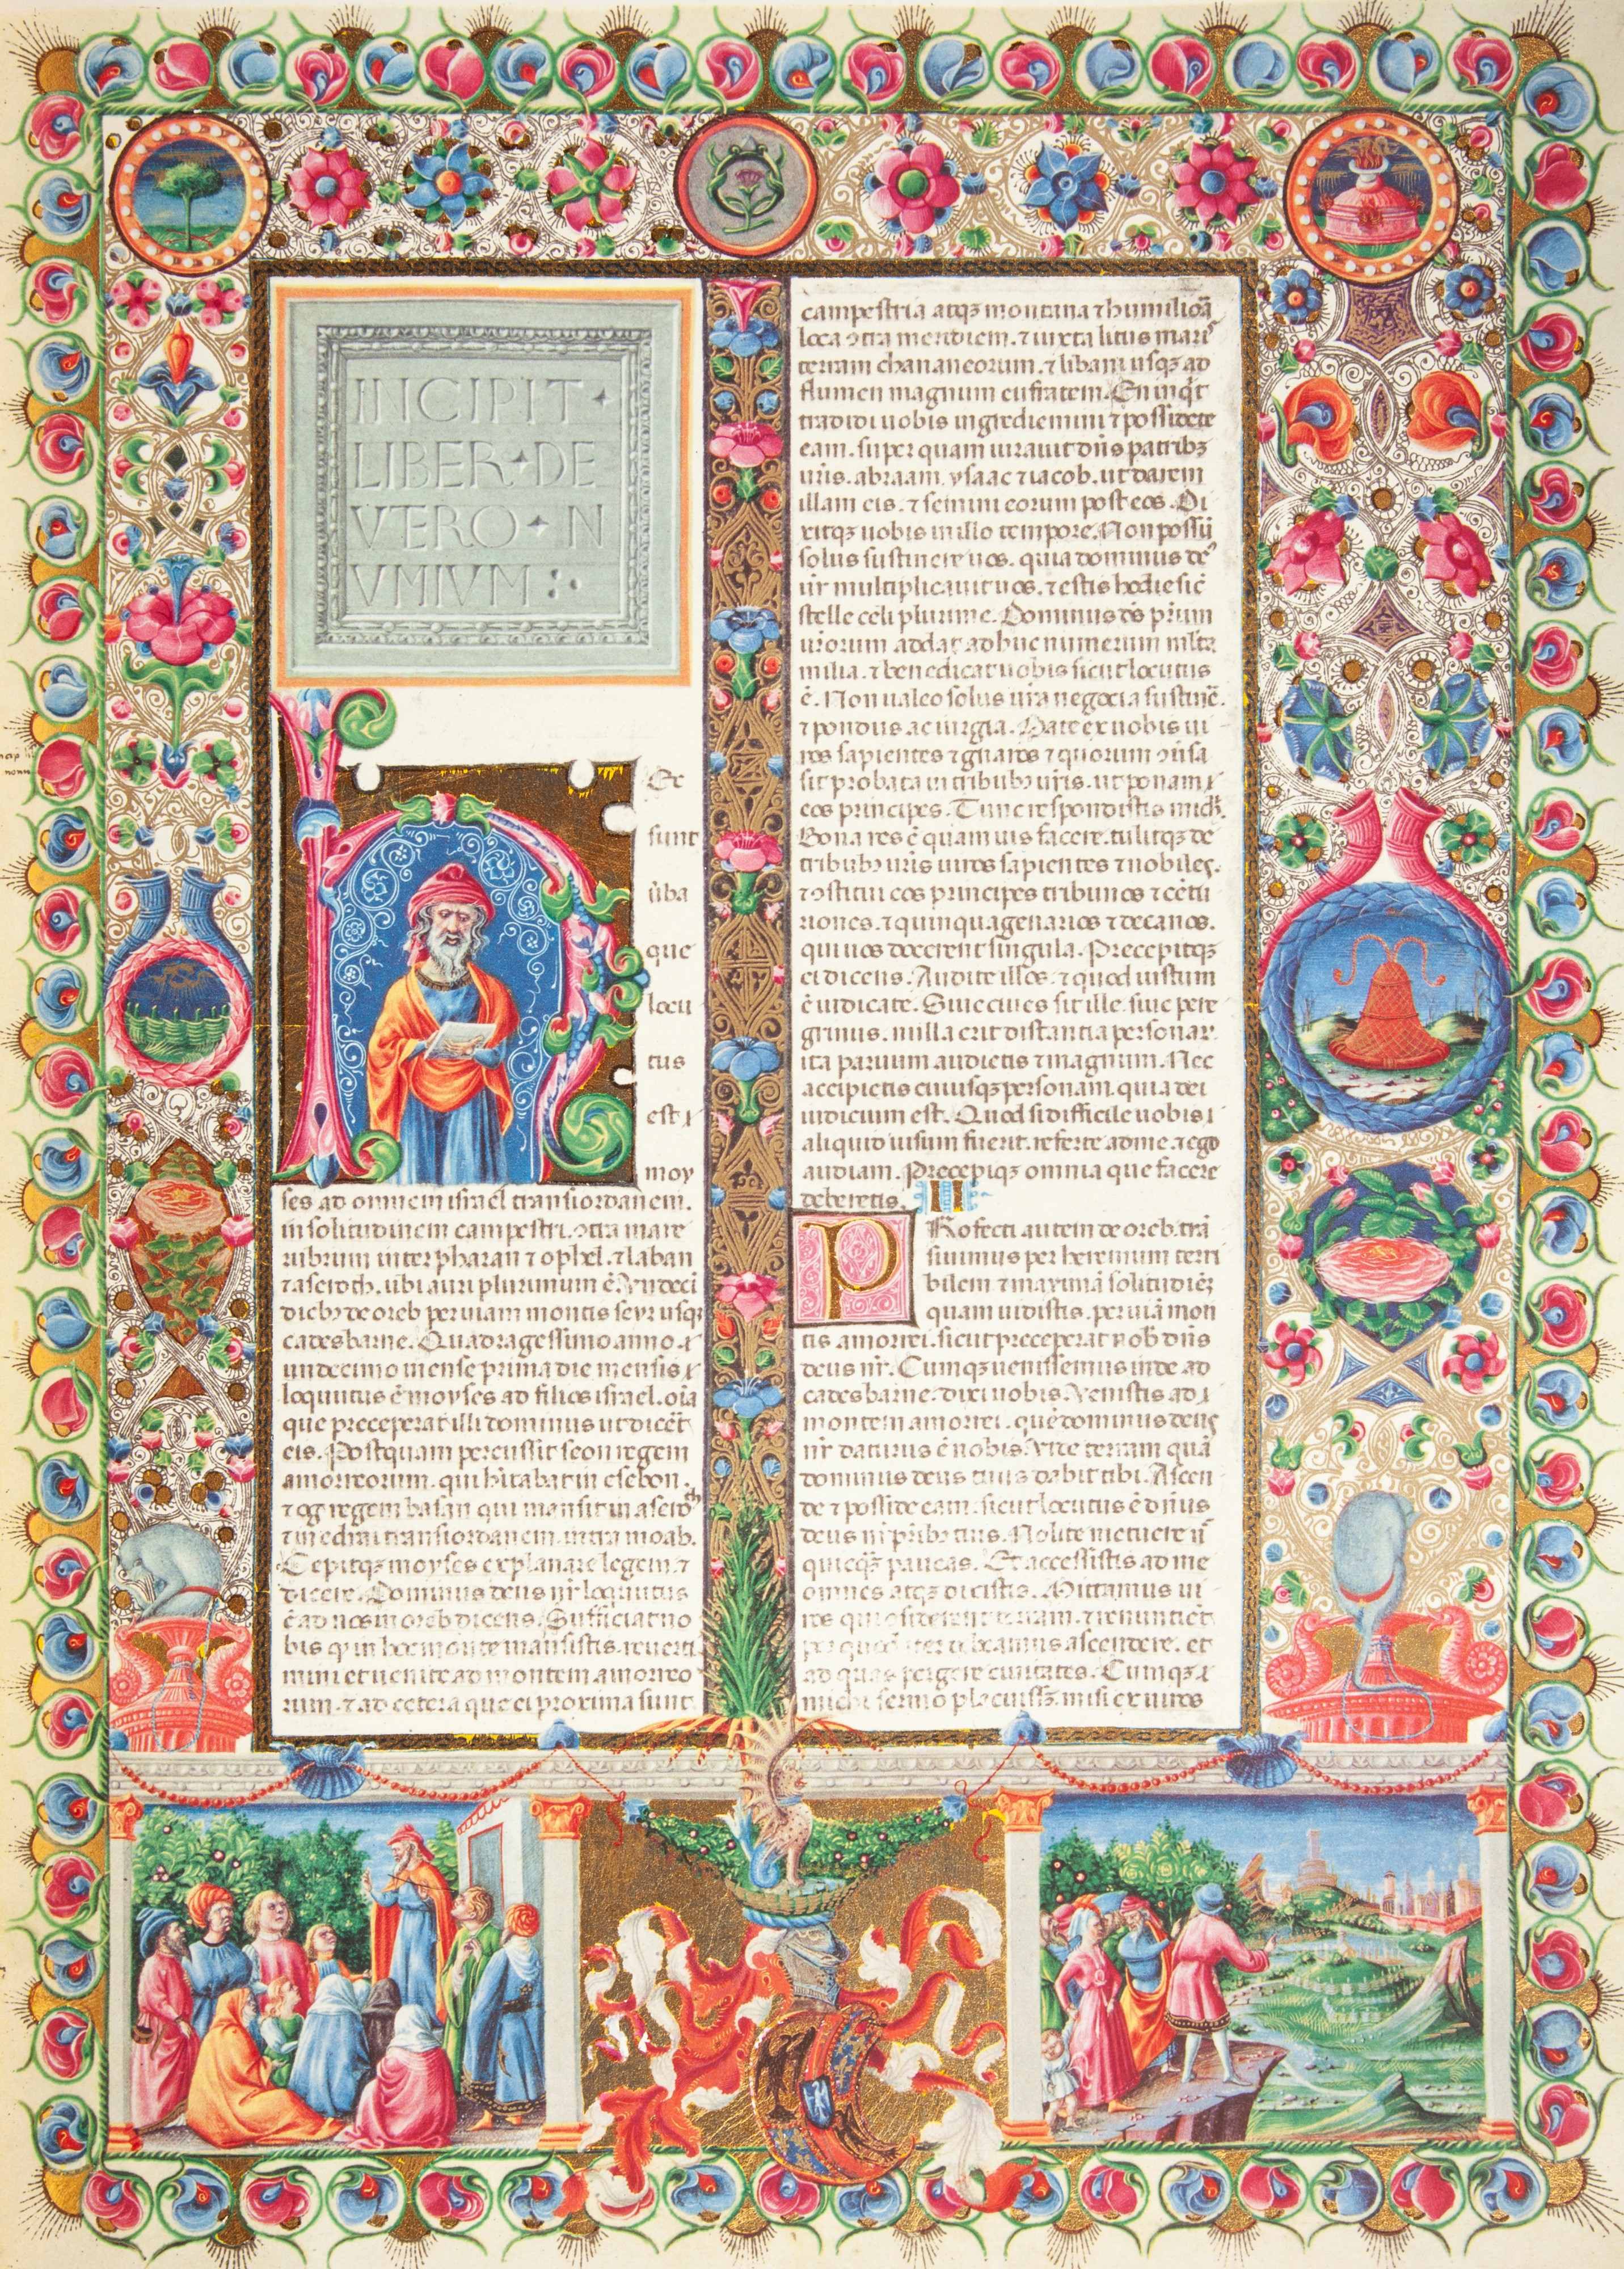 INCIPIT
LIBER DE
VTERO N
VMIVM
Ec
sunt
ũba
que
locu
tus
est
moy
ses ad omnem israel transiordanem.
in solitudinem campestri. ɔtra mare
rubrum inter pharan ⁊ ophel. ⁊ laban
⁊ aseroth. ubi auri plurimum ē. Vndeci
dieb; de oreb per uiam montis seyr usq;
cadesbarne. Quadragessimo anno
undecimo mense prima die mensis
loquutus ē moyses ad filios israel. oīa
que preceperat illi dominus ut dicēt
eis. Postquam percussit seon regem
amorreorum. qui hītabat in esebon.
⁊ og regem basan qui mansit in aseroth
⁊ in edrai transiordanem. in tra moab.
Cepitq; moyses explanare legem. ⁊
dicere. Dominus deus nr̄ loquutus
ē ad nos in oreb dicens. Sufficiat uo
bis q in hoc monte mansistis. reuerti
mini et uenite ad montem amorreo
rum. ⁊ ad cetera que ei proxima sunt
campestria atq; montana ⁊ humiliora
loca ɔtra meridiem. ⁊ iuxta litus maris
terram chananeorum. ⁊ libani usq; ad
flumen magnum eufratem. En inqͥt
tradidi uobis ingrediemini ⁊ possidete
eam. super quam iurauit dn̄s patrib;
uris. abraam. ysaac ⁊ iacob. ut darem
illam eis. ⁊ semini eorum post eos. Di
xitq; uobis in illo tempore. Non possū
solus sustinere uos. quia dominus de
ur multiplicauit uos. ⁊ estis hodie sic
stelle celi plurime. Dominus ds̄ prūm
urorum addat ad huc numerum multa
milia. ⁊ benedicat uobis sicut locutus
ē. Non ualeo solus ura negocia sustinē.
⁊ pondus ac iurgia. Date ex uobis ui
ros sapientes ⁊ gnaros ⁊ quorum ɔūsa
sit probata in tribub; uris. ut ponam
eos principes. Tunc respondistis mich.
Bona res ē quam uis facere. tuliq; de
tribub; uris uiros sapientes ⁊ nobiles.
⁊ ɔstitui eos principes tribunos ⁊ cētu
riones. ⁊ quinquagenarios ⁊ decanos.
qui uos docerent singula. Precepitq;
ei dicens. Audite illos. ⁊ quod iustum
ē iudicate. Siue ciues sit ille. siue pere
grinus. nulla erit distantia personar.
ita paruum audietis ⁊ magnum. Nec
accipietis cuiusq; personam. quia dei
iudicium est. Quod si difficile uobis
aliquid uisum fuerit. referte ad me. ⁊ ego
audiam. Precepiq; omnia que facere
deberetis. II
Profecti autem de oreb. trā
siuimus per heremum terri
bilem ⁊ maximā solitudinē
quam uidistis. per uiā mon
tis amorrei. sicut preceperat nob dn̄s
deus nr̄. Cumq; uenissemus inde ad
cadesbarne. dixi uobis. Venistis ad
montem amorrei. quē dominus deus
nr̄ daturus ē nobis. Vide terram quā
dominus deus tuus dabit tibi. Ascen
de ⁊ posside eam. sicut locutus ē dn̄us
deus nr̄ prib; tuis. Nolite metuere n
quicq̄ paueas. Et accessistis ad me
omnes atq; dixistis. Mittamus ui
ros qui ɔsiderent terram. ⁊ renuncient
per quod iter debeamus ascendere. et
ad quas pergere ciuitates. Cumq;
michi sermo placuiss;. misi ex uiros